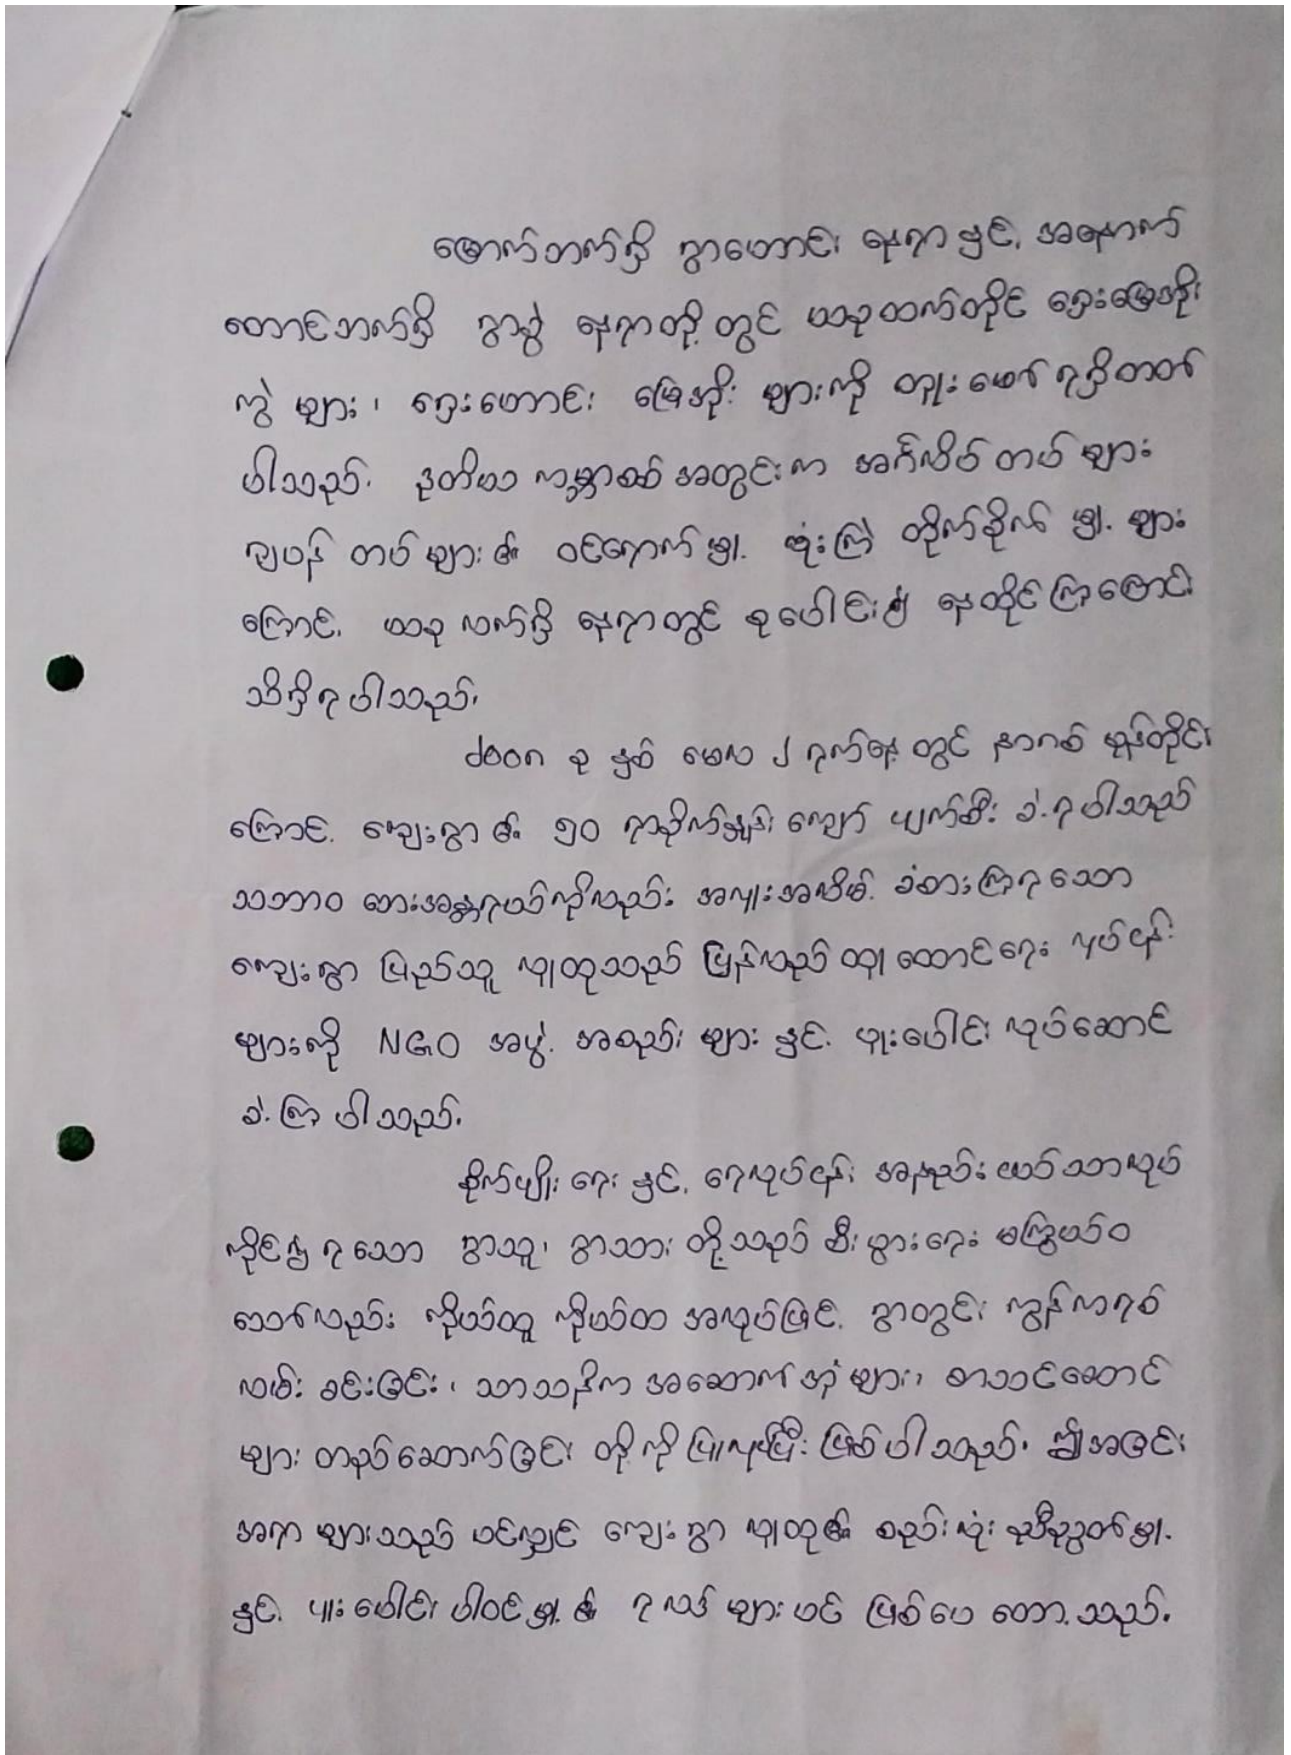 မြောက်ဘက်ရှိ ရွာဟောင်း နေရာ နှင့် အနောက်
တောင်ဘက်ရှိ ရွာခွဲ နေရာတို့ တွင် ယခုထက်တိုင် ရှေးမြေအိုး
ကွဲ များ ၊ ရှေးဟောင်း မြေအိုး များကို တူးဖော် ရရှိတတ်
ပါသည်၊ ဒုတိယ ကမ္ဘာစစ် အတွင်းက အင်္ဂလိပ် တပ် များ
ဂျပန် တပ် များ ၏ ဝင်ရောက်မှု့ ဗုံးကြဲ တိုက်ခိုက် မှု့ များ
ကြောင့် ယခု လက်ရှိ နေရာတွင် စုပေါင်း၍ နေထိုင်ကြကြောင်း
သိရှိ ရပါသည်၊
၂၀၀၈ ခု နှစ် မေလ ၂ ရက်နေ့ တွင် နာဂစ် မုန်တိုင်း
ကြောင့် ကျေးရွာ ၏ ၅၀ ရာခိုက်နှုန်း ကျော် ပျက်စီး ခဲ့ ရပါသည်
သဘာဝ ဘေးအန္တရာယ်ကိုလည်း အလူးအလိမ့် ခံစားကြရသော
ကျေးရွာ ပြည်သူ လူထုသည် ပြန်လည် ထူ ထောင်ရေး လုပ်ငန်း
များကို NGO အဖွဲ့ အစည်း များ နှင့် ပူးပေါင်း လုပ်ဆောင်
ခဲ့ ကြ ပါသည်၊
စိုက်ပျိုး ရေး နှင့် ရေလုပ်ငန်း အနည်းငယ်သာလုပ်
ကိုင်၍ ရသော ရွာသူ၊ ရွာသား တို့သည် စီးပွားရေး မကြွယ်ဝ
သော်လည်း ကိုယ်ထူ ကိုယ်ထ အလုပ်ဖြင့် ရွာတွင်း ကွန်ကရစ်
လမ်း ခင်းခြင်း ၊ သာသနိက အဆောက်အုံများ၊ စာသင်ဆောင်
များ တည်ဆောက်ခြင်း တို့ကို ပြုလုပ်ပြီး ဖြစ်ပါသည်၊ ဤအခြင်း
အရာ များသည် ပင်လျှင် ကျေးရွာ လူထု၏ စည်းလုံး ညီညွတ်မှု့
နှင့် ပူးပေါင်း ပါဝင်မှု့ ၏ ရလဒ် များ ပင် ဖြစ်ပေ တော့သည်။